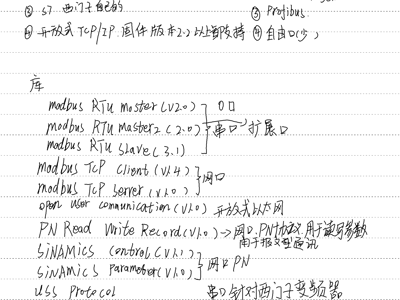 ② S7 西门子自己的
③ Profibus.
④ 开放式 TCP/IP. 固件版本2.2以上都支持 ④ 自由口(少)
库
modbus RTU master (V2.0)
modbus RTU master2 (2.0) 串口 扩展口
modbus RTU Slave (3.1)
modbus TCP client (V1.4) 网口
modbus TCP server (V1.0)
open user communication (V1.0) 开放式以太网
PN Read Write Record (V1.0) → 网口. PN协议 用于读写参数
用于报文型通讯
SINAMICS control (V1.1) 网口 PN
SINAMICS parameter (V1.0)
USS Protocol 串口 针对西门子变频器